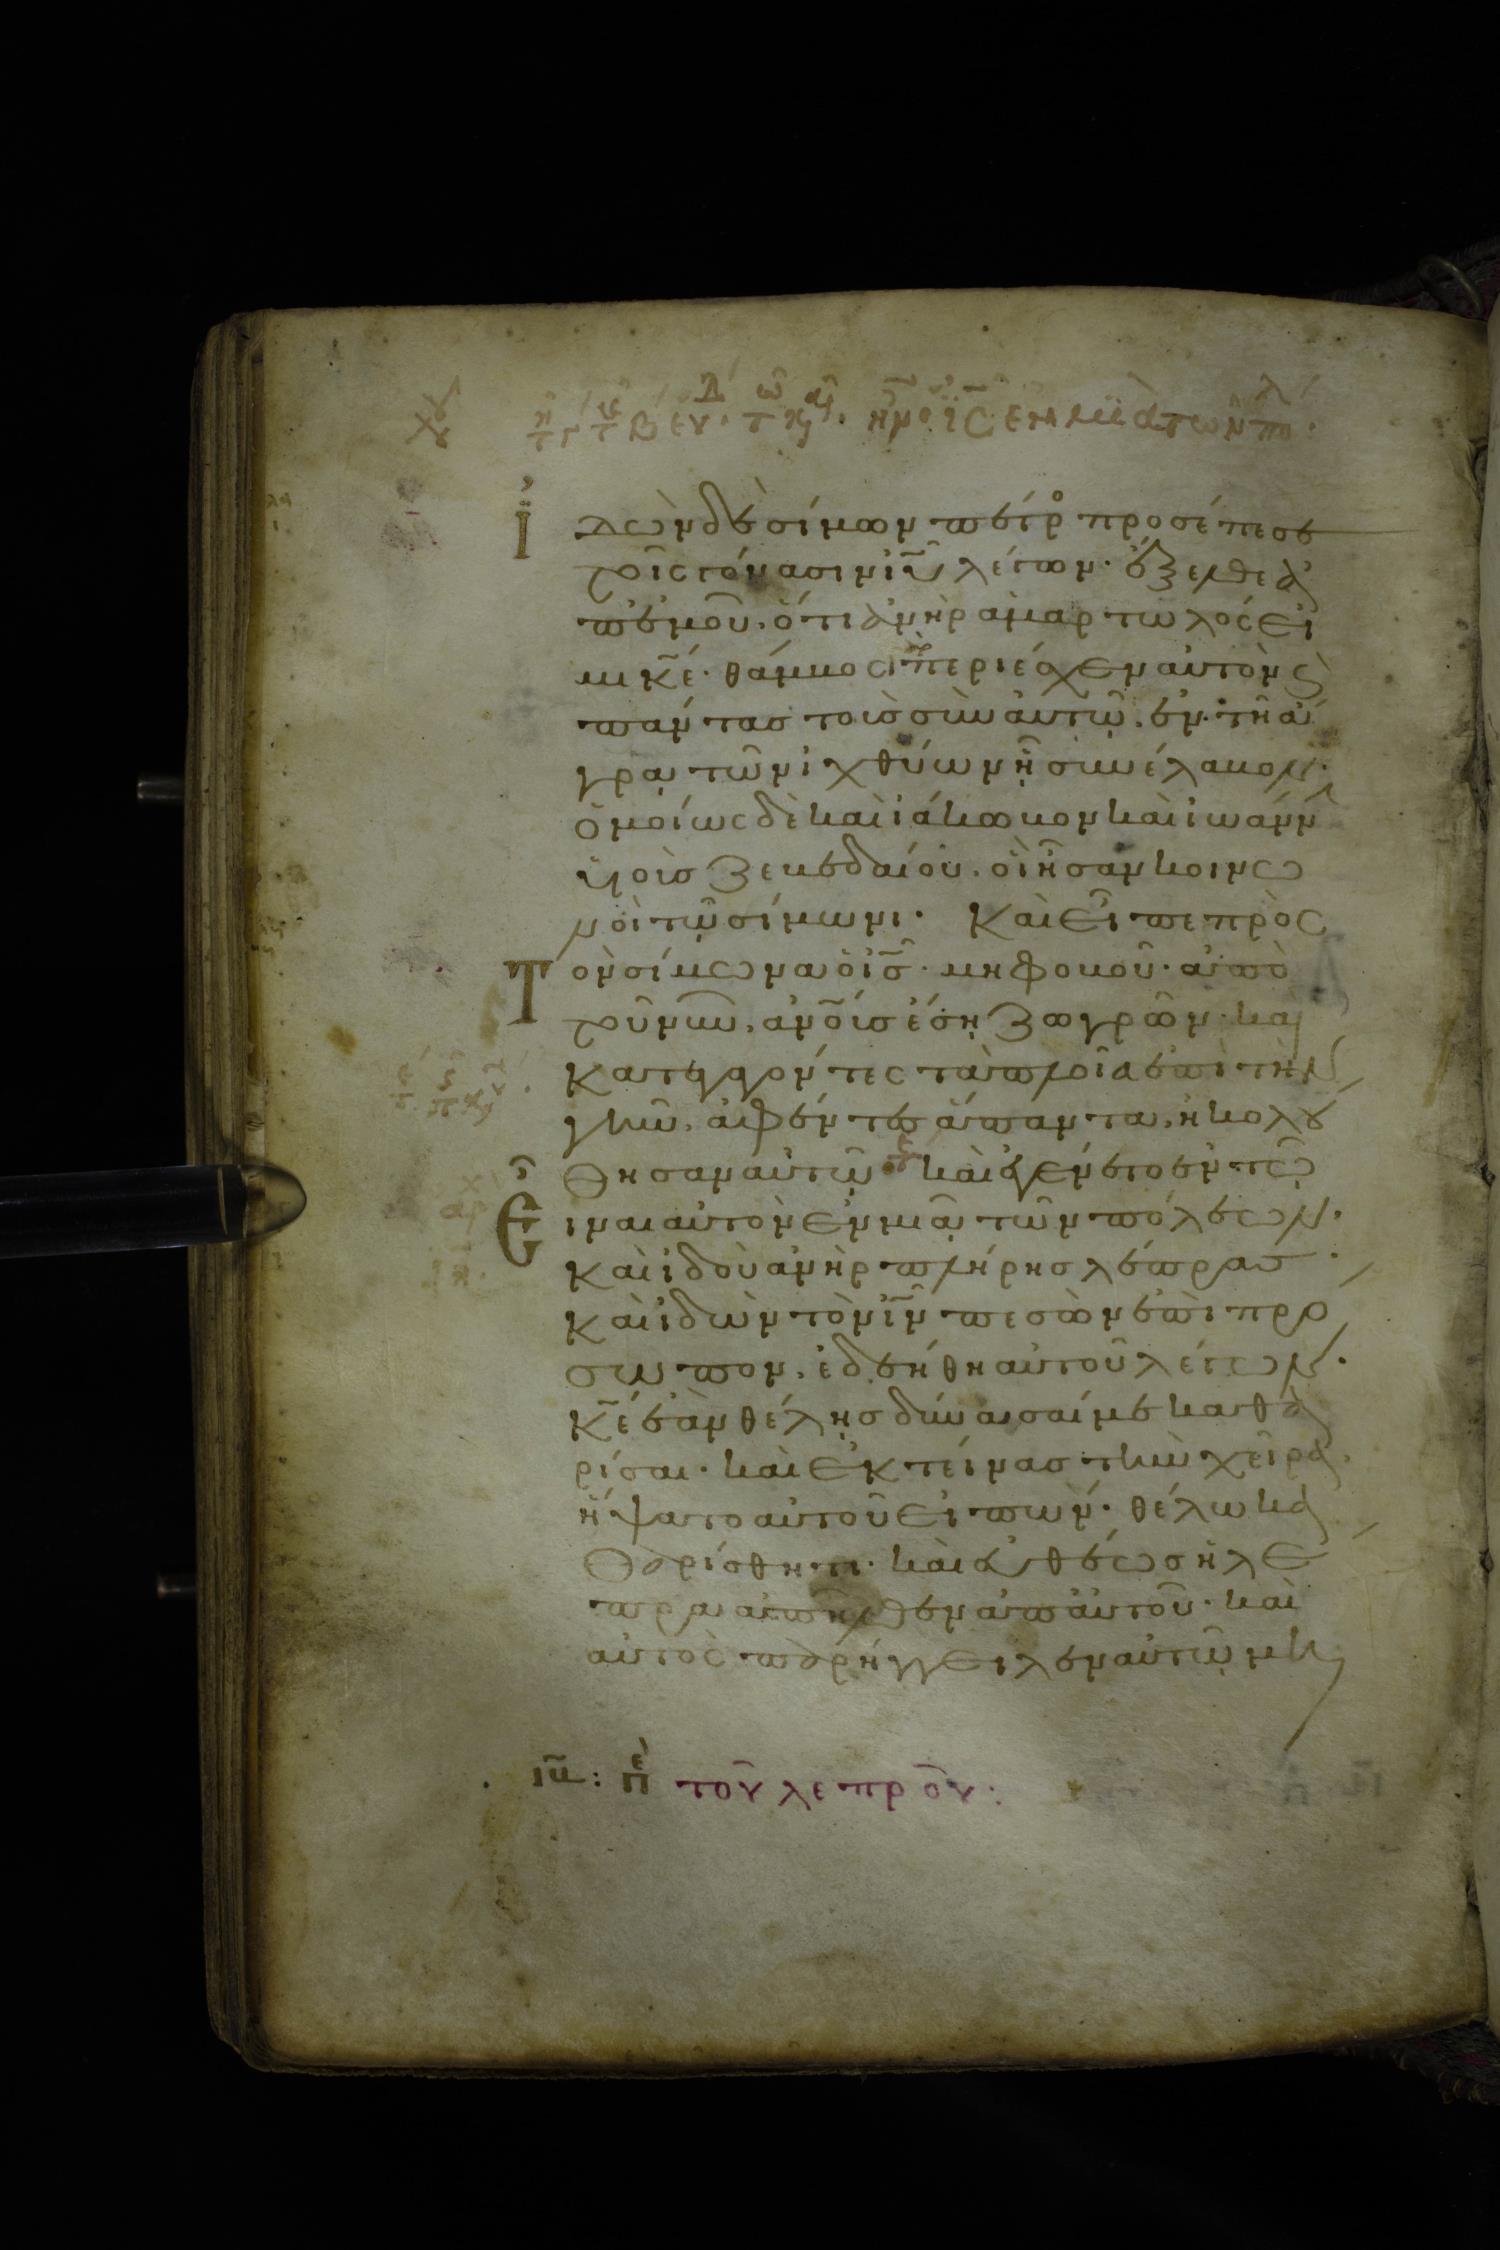 Ἰδὼν δὲ σίμων πέτρο προσέπεσε
τοῖς γόνασιν ἰυ λέγων· ἔξελθε ἀ
π' ἐμοῦ, ὅτι ἀνὴρ ἁμαρτωλός εἰ
μι κε· θάμβος γὰρ περιέσχεν αὐτὸν ϗ
πάντας τοὺς σὺν αὐτῷ, ἐν τῇ ἄ
γρᾳ τῶν ἰχθύων ᾗ συνέλαβον·
ὁμοίως δὲ καὶ ἰάκωβον καὶ ἰωάννην
υἱοὺς ζεβεδαίου, οἳ ἦσαν κοινω
νοὶ τῷ σίμωνι. Καὶ εἶπε πρὸς
Τὸν σίμωνα ὁ ις· μὴ φοβοῦ· ἀπὸ
τοῦ νῦν, ανους ἔσῃ ζωγρῶν· καὶ
καταγαγόντες τὰ πλοῖα ἐπὶ τὴν
γῆν, ἀφέντες ἅπαντα, ἠκολού
θησαν αὐτῷ καὶ ἐγένετο ἐν τῷ
εἶναι αὐτὸν ἐν μιᾷ τῶν πόλεων·
καὶ ἰδοὺ ἀνὴρ πλήρης λέπρας·
καὶ ἰδὼν τὸν ιν πεσὼν ἐπὶ πρό
σωπον, ἐδεήθη αὐτοῦ λέγων·
κε ἐὰν θέλῃς δύνασαί με καθα
ρίσαι· καὶ ἐκτείνας τὴν χεῖρα,
ἥψατο αὐτοῦ εἰπών· θέλω κα
θαρίσθητι· καὶ εὐθέως ἡ λέ
πρα ἀπῆλθεν ἀπ' αὐτοῦ· καὶ
αὐτὸς παρήγγειλεν αὐτῷ μη
ιδ: πε τοῦ λεπροῦ: